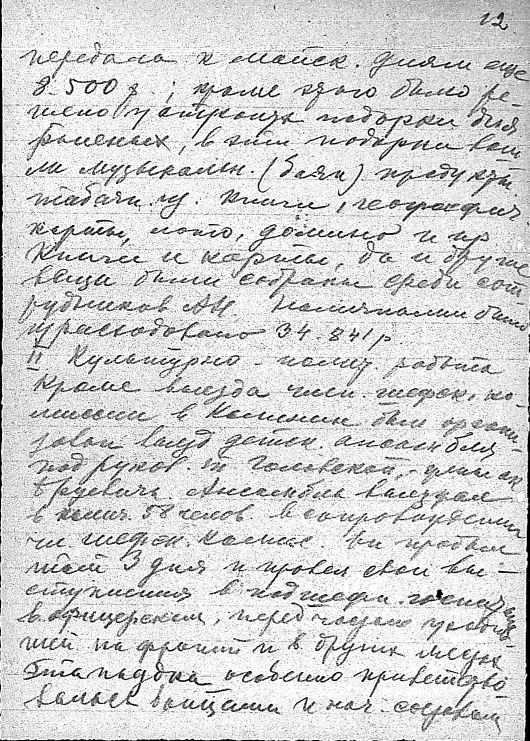 12
передала к майск. дням еще
8.500 р.; кроме этого было ре-
шено устроить подарки для
раненых, в эти подарки вош
ли музыкальн. (баян) продукты
табачн. изд. книги, географич.
карты, лото, домино и пр
Книги и карты, да и другие
вещи были собраны среди сот
рудников АН. Наличными было
израсходовано 34.841 р
II Культурно-полит. работа
Кроме выезда член. шефск. ко-
миссии в Калинин был органи
зован выезд детск. ансамбля
под руков. Головской,
Ансамбль выезжал
в колич. 58 челов. в сопровождении
чл. шефск. комис. Он пробыл
там 3 дня и провел свои вы-
ступления в подшефн. госпитале
в офицерском, перед частью уходив
шей на фронт и в других местах
Эта поездка особенно приветство
валась бойцами и нач. составом